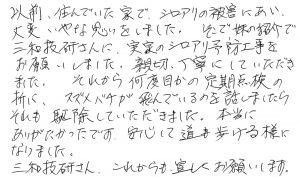 以前、住んでいた家で、シロアリの被害にあい、
大変いやな思いをしました。 そこで妹の紹介で
三和技研さんに、実家のシロアリ予防工事を
お願いしました。親切、丁寧にしていただき
ました。 それから何度目かの定期点検の
折に、スズメバチが飛んでいるのを話しましたら
それも駆除していただきました。本当に
ありがたかったです。安心して道も歩ける様に
なりました。
三和技研さん、これからも宜しくお願いします。